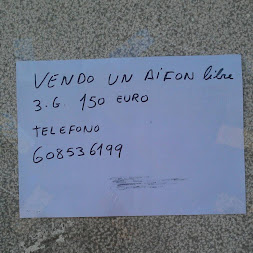 VENDO UN AIFON libre
3.G. 150 EURO
TELEFONO
608536199